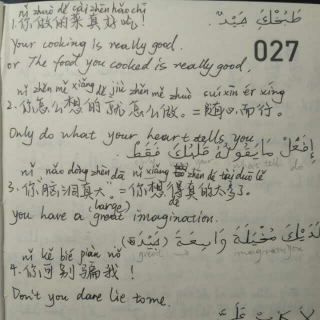 nǐ zhuò de cài zhēn hǎo chī
1. 你做的菜真好吃! طَبْخُكِ جَيِّدٌ.
Your cooking is really good.
027
or The food you cooked is really good.
nǐ zěn mě xiǎng de jiù zěn mě zhuò suí xīn ér xíng
2. 你怎么想的就怎么做。= 随心而行。
Only do what your heart tells you.
إِفْعَلْ مَا يَقُولُهُ قَلْبُكَ فَقَطْ
your tell do
nǐ nǎo dòng zhēn dà nǐ xiǎng de zhēn de tài duō le
3. 你"脑洞真大"= 你想得真的太多了。
(large) de
you have a great imagination.
لَدَيْكَ مُخَيِّلَةٌ وَاسِعَةٌ (جَيِّدَة)
great imagination you
nǐ kě bié piàn wǒ
4. 你可别骗我!
Don't you dare lie to me.